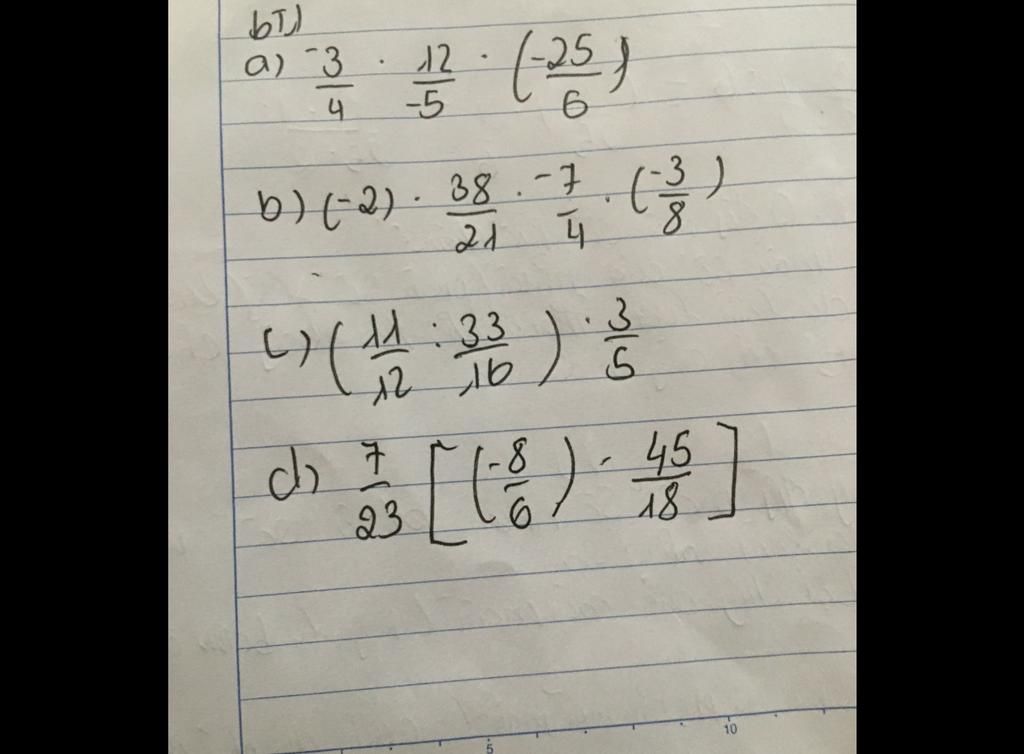 bT1
a) -3/4 · 12/-5 · (-25/6)
b) (-2) · 38/21 · -7/4 · (-3/8)
c) (11/12 : 33/16) · 3/5
d) 7/23 [(-8/6) - 45/18]
5 10